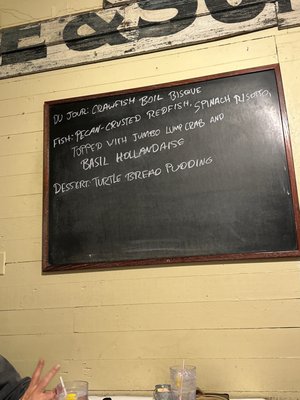 & S
DU JOUR: CRAWFISH BOIL BISQUE
FISH: PECAN-CRUSTED REDFISH, SPINACH RISOTTO,
TOPPED WITH JUMBO LUMP CRAB AND
BASIL HOLLANDAISE
DESSERT: TURTLE BREAD PUDDING